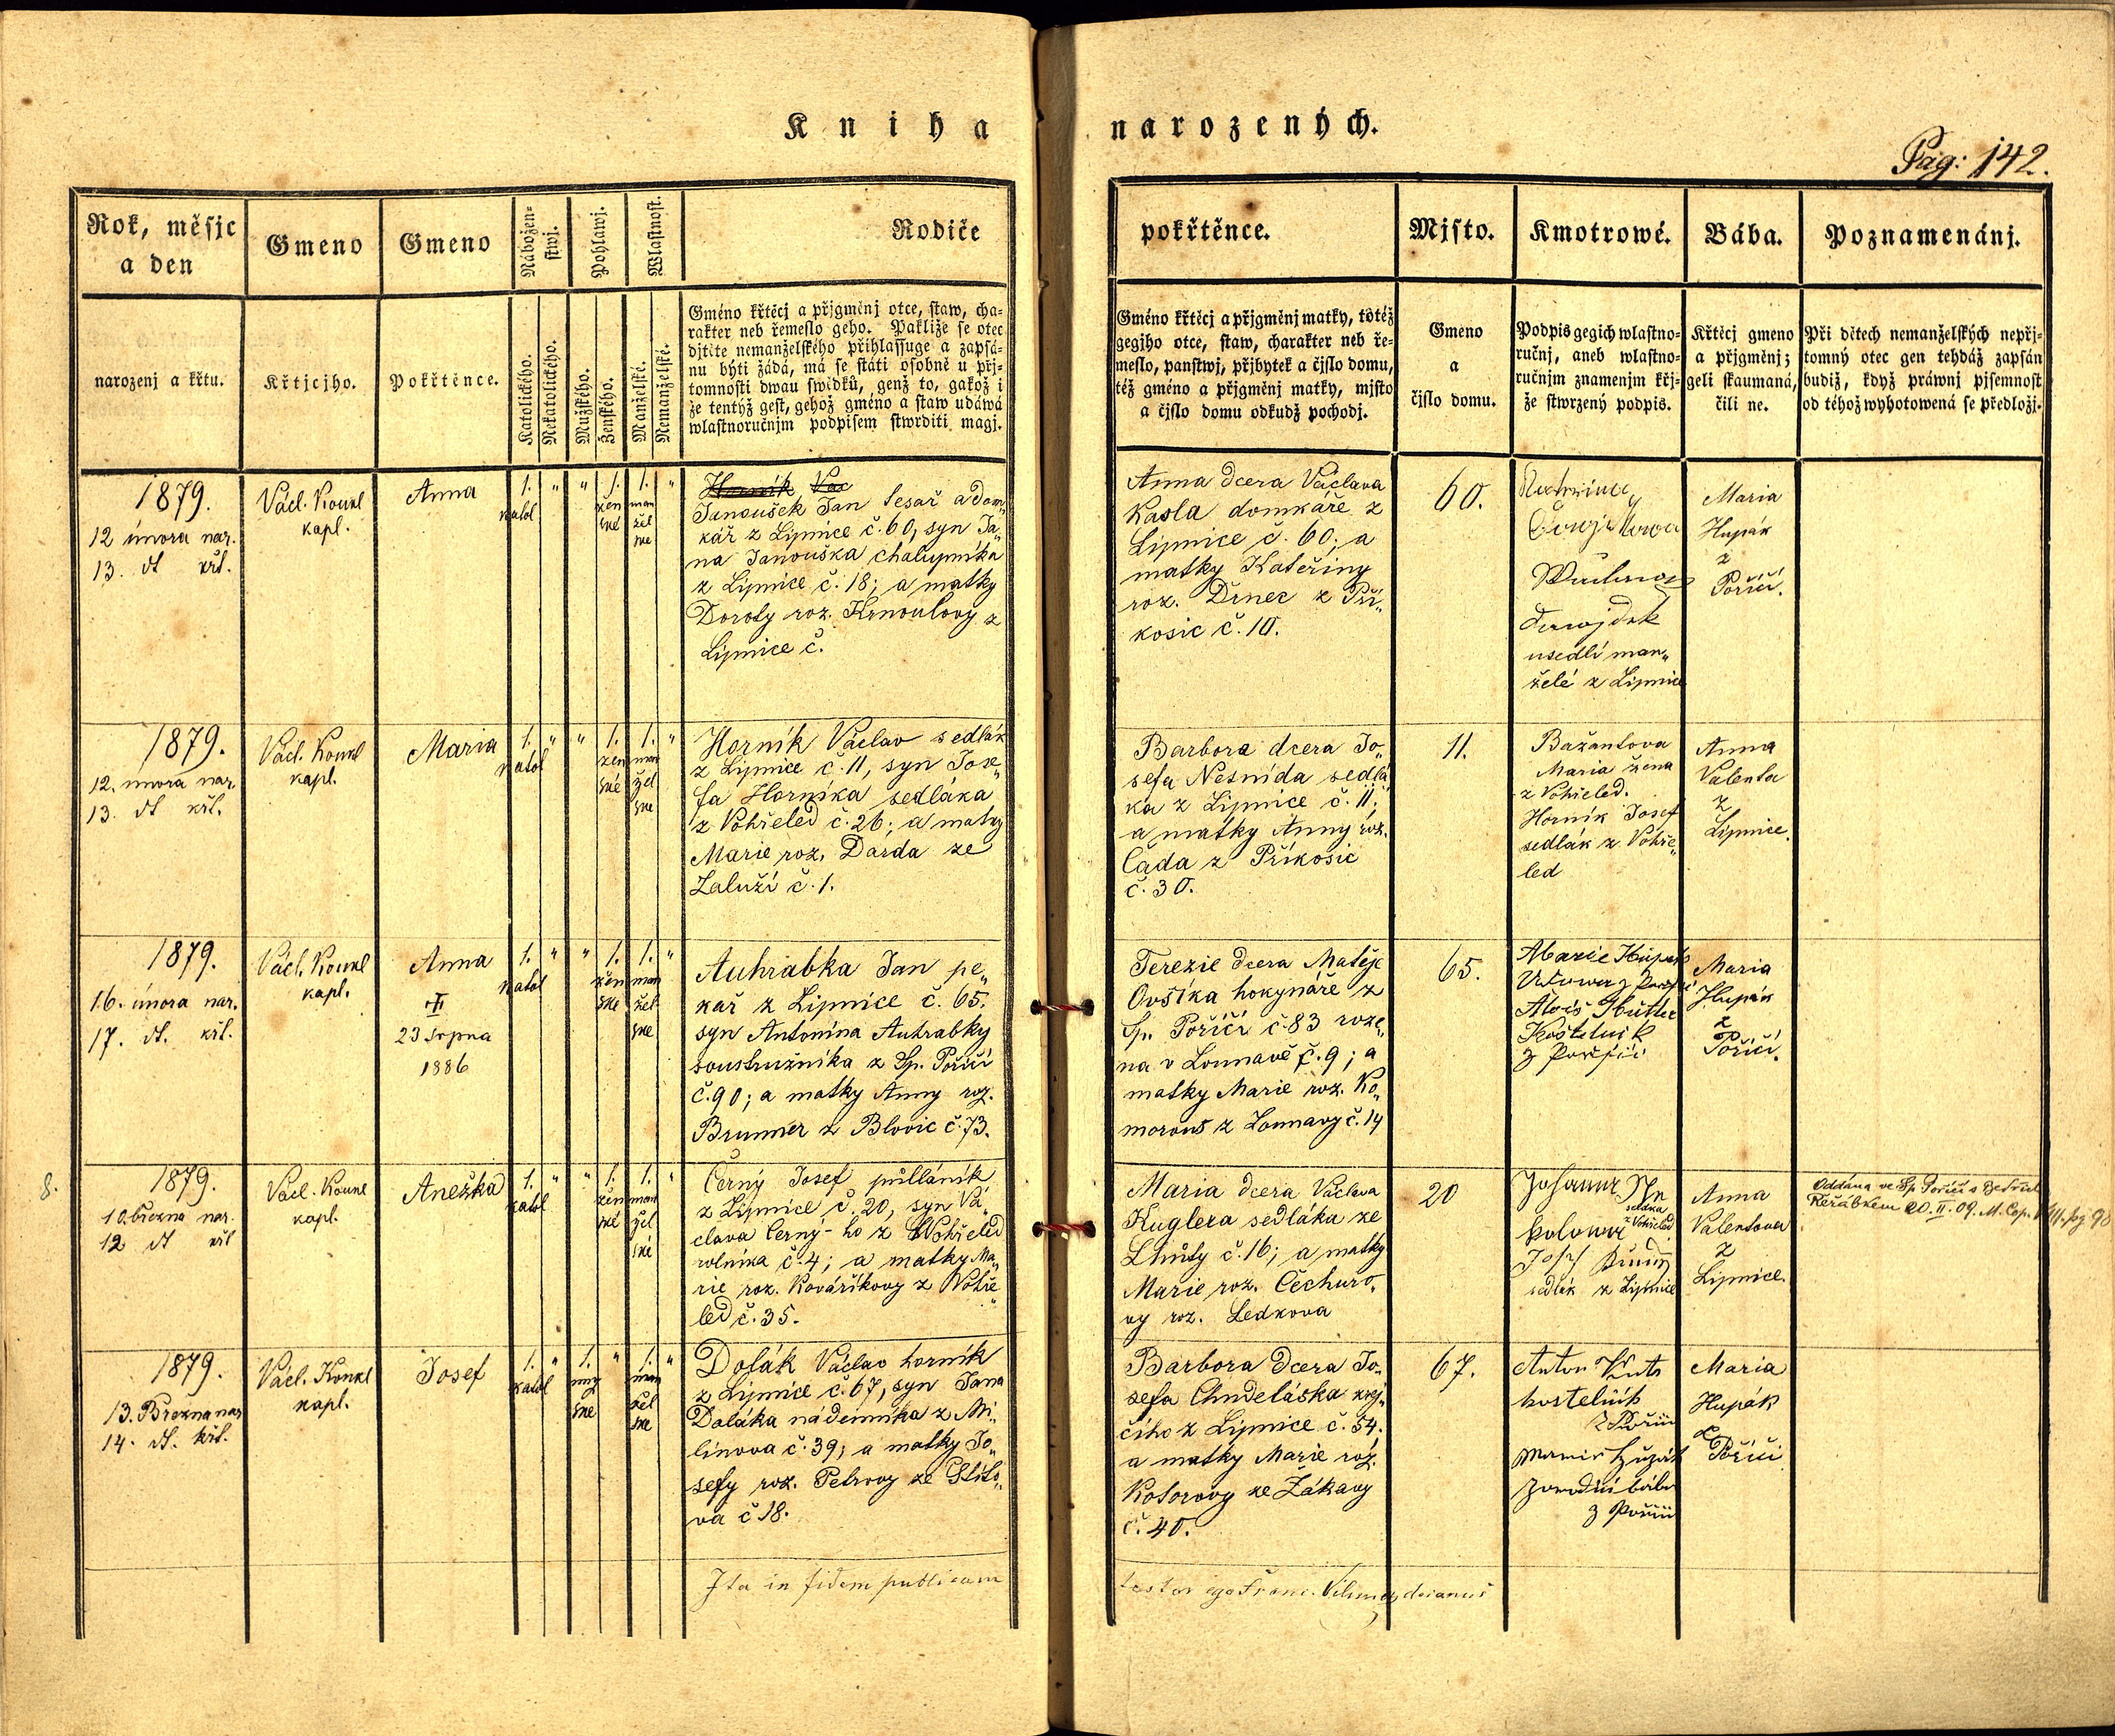 Kniha narozených.
Pag: 142.
Rok, měsíc
a den
narozenj a křtu.
Gmeno
Křtjcjho.
Gmeno
Pokřtěnce.
Nábožen-
stwj.
Katolického.
Nekatolického.
Pohlawj.
Mužského.
Ženského.
Wlastnost.
Manželské.
Nemanželské.
Rodiče
Gméno křtěcj a přjgměnj otce, staw, cha-
rakter neb řemeslo geho. Pakliže se otec
djtěte nemanželského přihlassuge a zapsá-
nu býti žádá, má se státi osobně u přj-
tomnosti dwau swědků, genž to, gakož i
že tentýž gest, gehož gméno a staw udáwá
wlastnoručnjm podpisem stwrditi magj.
pokřtěnce.
Gméno křtěcj a přjgměnj matky, totéž
gegjho otce, staw, charakter neb ře-
meslo, panstwj, přjbytek a čjslo domu,
též gméno a přjgměnj matky, mjsto
a čjslo domu odkudž pochodj.
Mjsto.
Gmeno
a
čjslo domu.
Kmotrowé.
Podpis gegich wlastno-
ručnj, aneb wlastno-
ručnjm znamenjm křj-
že stwrzený podpis.
Bába.
Křtěcj gmeno
a přjgměnj;
geli skaumaná,
čili ne.
Poznamenánj.
Při dětech nemanželských nepřj-
tomný otec gen tehdáž zapsán
budiž, když práwnj pjsemnost
od téhož wyhotowená se předložj.
1879.
12 února nar.
13. dt křt.
Václ. Kounl
kapl.
Anna
1. " " 1. 1. "
katol
žen
ské
man
žel
ské
Horník Vac
Janoušek Jan tesař a dom„
kář z Lipnice č. 60, syn Ja„
na Janouška chalupníka
z Lipnice č. 18; a matky
Doroty roz. Krnoulovy z
Lipnice č.
Anna dcera Václava
Kasla domkáře z
Lipnice č. 60; a
matky Kateřiny
roz. Drnec z Pří„
kosic č. 10.
60.
usedlí man„
želé z Lipnice
Maria
Hupák
z
Poříčí.
1879.
12. února nar.
13. dt křt.
Václ. Kounl
kapl.
Maria
1. " " 1. 1. "
katol
žen
ské
man
žel
ské
Horník Václav sedlák
z Lipnice č. 11, syn Jose„
fa Horníka sedláka
z Vohřeled č. 26; a matky
Marie roz. Darda ze
Zaluží č. 1.
Barbora dcera Jo„
sefa Nesnída sedlá
ka z Lipnice č. 11;
a matky Anny roz.
Čada z Příkosic
č. 30.
11.
Bažantova
Maria žena
z Vohřeled.
Horník Josef
sedlák z Vohře„
led
Anna
Valenta
z
Lipnice.
1879.
16. února nar.
17. dt. křt.
Václ. Kounl
kapl.
Anna
✝
23 srpna
1886
1. " " 1. 1. "
katol
žen
ské
man
žel
ské
Auhrabka Jan pe„
kař z Lipnice č. 65.
syn Antonína Auhrabky
soustružníka z Sp. Poříčí
č. 90; a matky Anny roz.
Brunner z Blovic č. 73.
Terezie dcera Matěje
Ovsíka hokynáře z
Sp. Poříčí č. 83 roze„
na v Lounavě č. 9; a
matky Marie roz. Ko„
morous z Lounavy č. 14
65.
Marie Hupák
Alois Hütter
Kostelník
z Poříčí
Maria
Hupák
z
Poříčí.
8.
1879.
10. března nar.
12 dt křt
Václ. Kounl
kapl.
Anežka
1. " " 1. 1. "
katol
žen
ské
man
žel
ské
Černý Josef půlláník
z Lipnice č. 20, syn Vá„
clava Černý-ho z Vohřeled
rolníka č. 4; a matky Ma„
rie roz. Kovaříkovy z Vohře
led č. 35.
Maria dcera Václava
Kuglera sedláka ze
Lhůty č. 16; a matky
Marie roz. Čechuro„
vy roz. Ledkova
20
sedlák z Lipnice
Anna
Valentova
z
Lipnice.
Oddána ve Sp. Poříčí s
Keřábkem 20. II. 09. M. Cop.
1879.
13. Března nar
14. dt. křt.
Václ. Kounl
kapl.
Josef
1. " 1. " 1. "
katol
muž
ské
man
žel
ské
Dolák Václav horník
z Lipnice č. 67, syn Jana
Doláka nádenníka z Mi„
línova č. 39; a matky Jo„
sefy roz. Petrovy ze Štíto„
va č 18.
Barbora dcera Jo„
sefa Chudeláska krej„
čího z Lipnice č. 54;
a matky Marie roz.
Kotorovy ze Žákavy
č. 40.
67.
Anton
kostelník
z Poříčí
z Poříčí
Maria
Hupák
z
Poříčí
Ita in fidem publicam
testor ego Franc. decanus